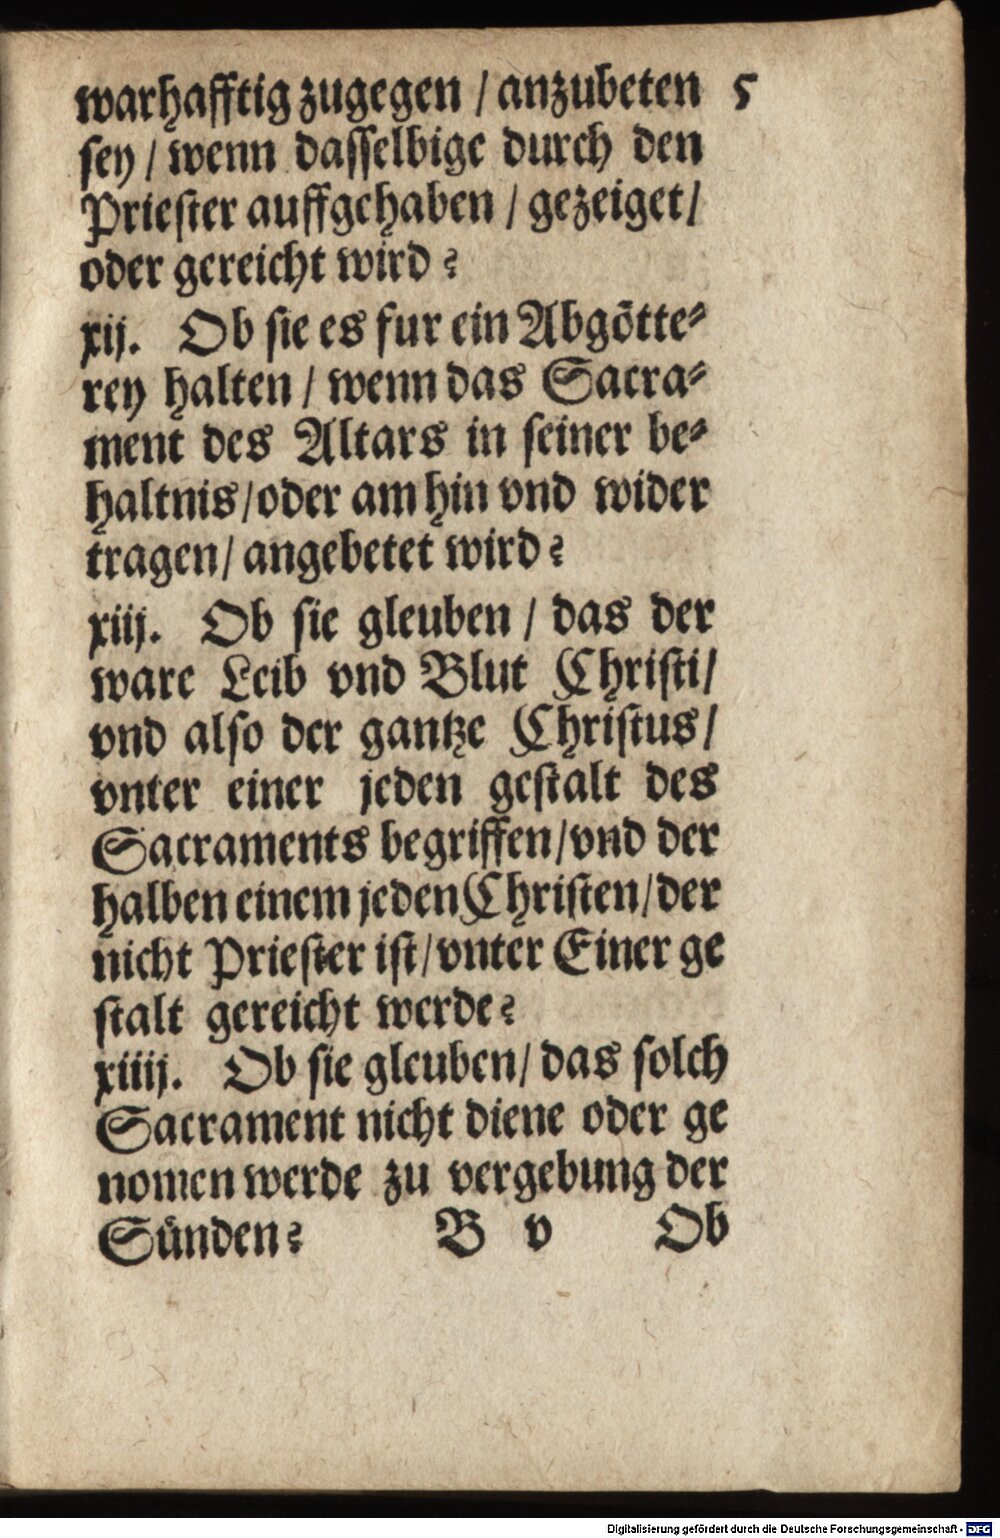 warhafftig zugegen / anzubeten 5
sey / wenn dasselbige durch den
Priester auffgehaben / gezeiget /
oder gereicht wird?
xij. Ob sie es fur ein Abgötte⸗
rey halten / wenn das Sacra⸗
ment des Altars in seiner be⸗
haltnis / oder am hin vnd wider
tragen / angebetet wird?
xiij. Ob sie gleuben / das der
ware Leib vnd Blut Christi /
vnd also der gantze Christus /
vnter einer jeden gestalt des
Sacraments begriffen / vnd der
halben einem jeden Christen / der
nicht Priester ist / vnter Einer ge
stalt gereicht werde?
xiiij. Ob sie gleuben / das solch
Sacrament nicht diene oder ge
nomen werde zu vergebung der
Sünden? B v Ob
Digitalisierung gefördert durch die Deutsche Forschungsgemeinschaft - DFG